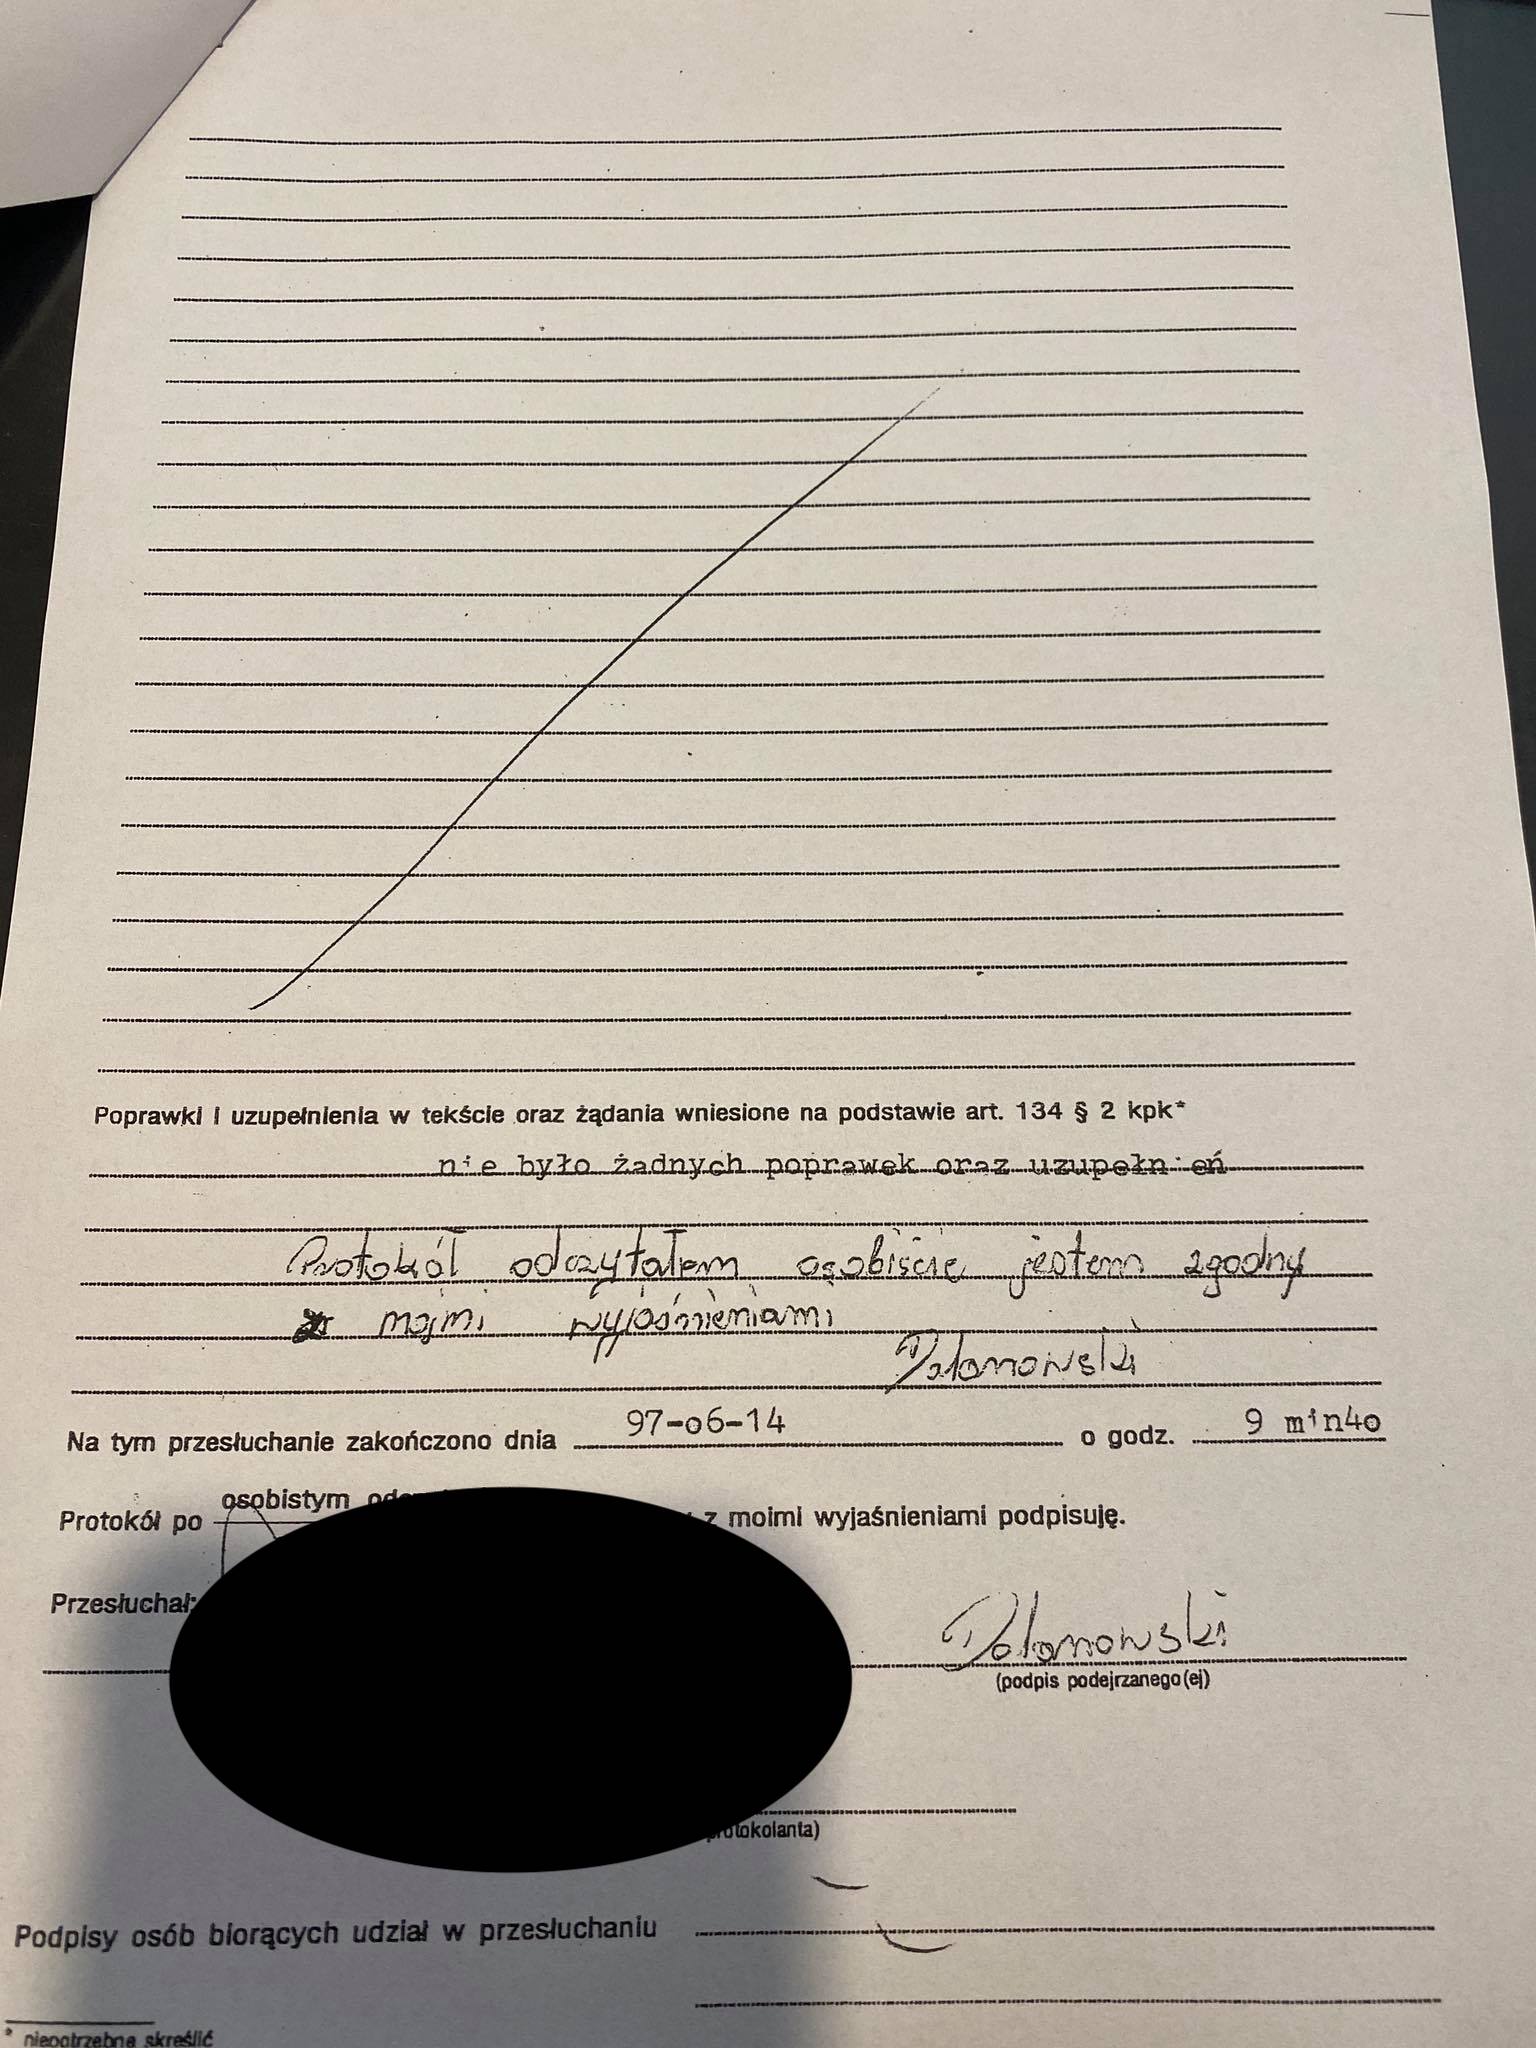 Poprawki i uzupełnienia w tekście oraz żądania wniesione na podstawie art. 134 § 2 kpk*
nie było żadnych poprawek oraz uzupełnień
Protokół odczytałem osobiście jestem zgodny
z moimi wyjaśnieniami
Dołonowski
Na tym przesłuchanie zakończono dnia 97-o6-14 o godz. 9 min4o
osobistym
Protokół po z moimi wyjaśnieniami podpisuję.
Przesłuchał:
Dołonowski
(podpis podejrzanego(ej)
protokolanta)
Podpisy osób biorących udział w przesłuchaniu
* niepotrzebne skreślić